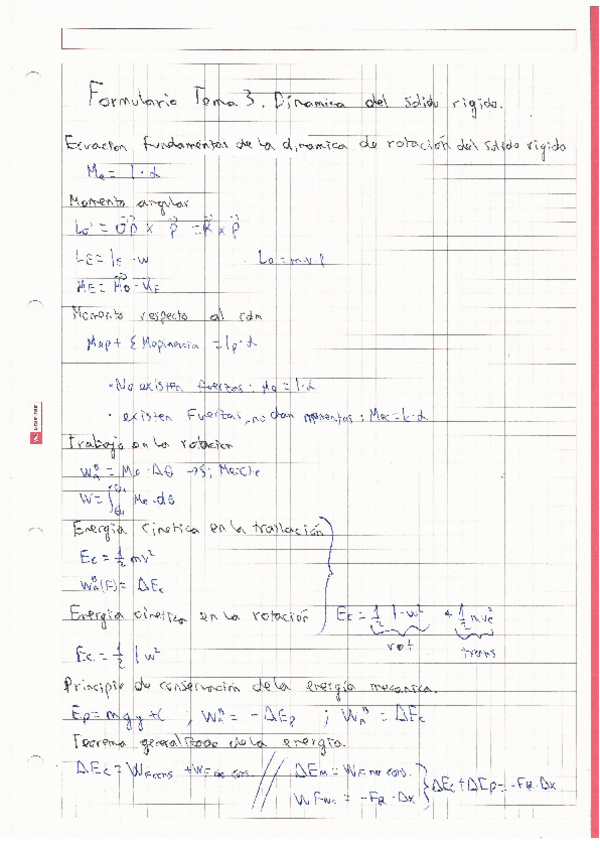 Formulario Tema 3. Dinamica del solido rigido.
Ecuacion fundamental de la dinamica de rotación del solido rigido
Me = I · α
Momento angular
Lo = OP x P = R x P
LE = IE · w Lo = m v r
ME = Mo · UE
Momento respecto al cdm
+ Σ Mopinercia = Ip · α
· No existen fuerzas : Mo = I · α
· existen Fuerzas, no dan momentos : = I · α
Trabajo en la rotacion
W = Me · Δθ → Si Me: cte
W = ∫ Me · dθ
Energia cinetica en la traslación
Ec = 1/2 mv²
W(F) = ΔEc
Energia cinetica en la rotación Ec = 1/2 I · w² + 1/2 m vc²
rot trans
Ec = 1/2 I w²
Principio de conservación de la energía mecanica.
Ep = m g y + C , W = - ΔEp ; W = ΔEc
Teorema generalizado de la energía.
ΔEc = WF cons + WF no cons. // ΔEm = WF no cons. } ΔEc + ΔEp = - FR · Δx
WF nc = - FR · Δx